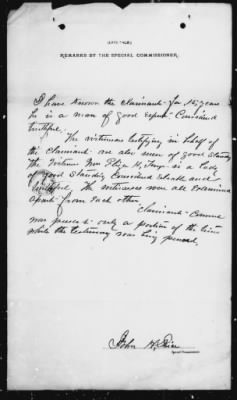 (LAST PAGE)
REMARKS BY THE SPECIAL COMMISSIONER.
I have known the claimant for 15 years
he is a man of good repute Considered
truthful.
The witnesses testifying in behalf of
the claimant are also men of good standing
The witness Mrs H. is a Lady
of good Standing Considered reliable and
truthful. The witnesses were all Examined
apart from each other.
Claimants Counsel
was present only a portion of the time
while the testimony was being
John
Special Commissioner.